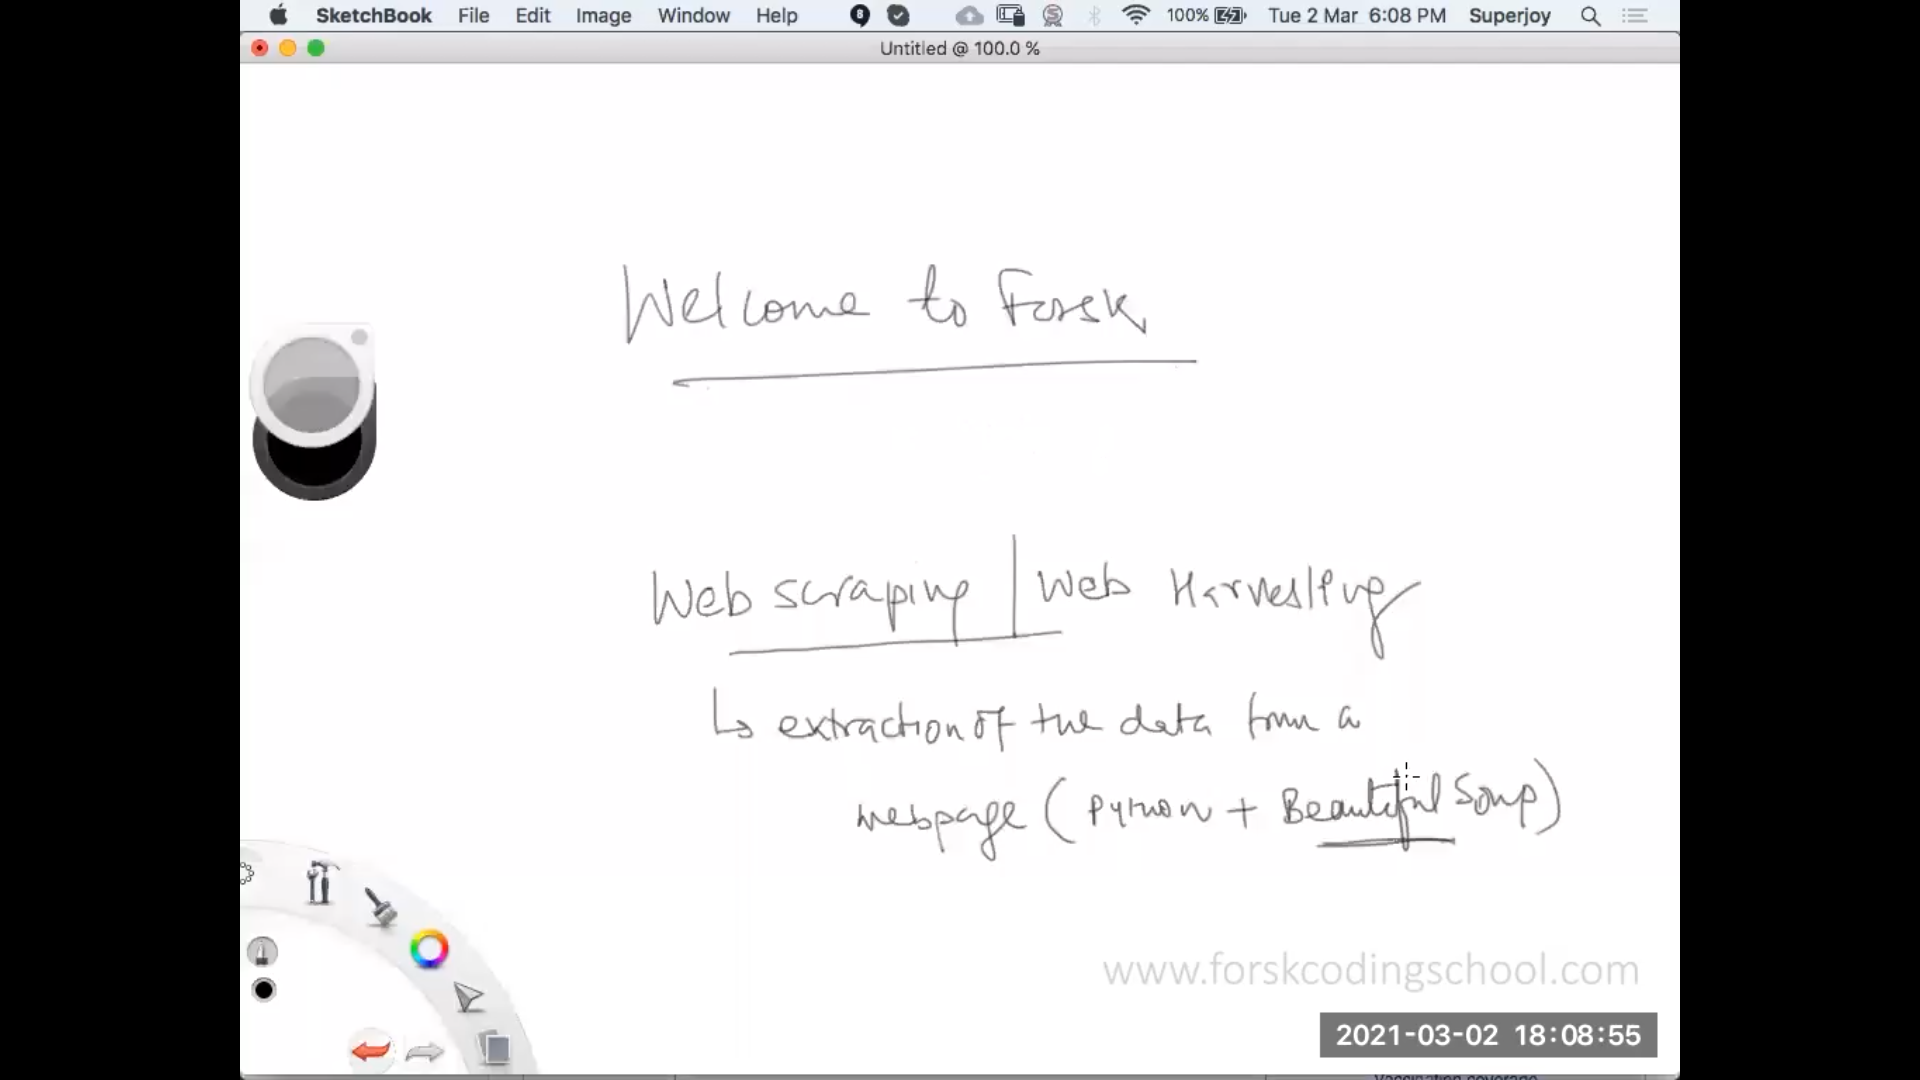 SketchBook File Edit Image Window Help 8 100% Tue 2 Mar 6:08 PM Superjoy
Untitled @ 100.0 %
Welcome to Forsk
Web scraping | Web Harvesting
↳ extraction of the data from a
webpage (Python + Beautiful Soup)
www.forskcodingschool.com
2021-03-02 18:08:55
Vaccination coverage